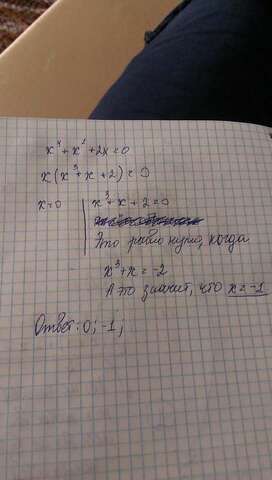 x⁴ + x¹ + 2x = 0
x(x³ + x + 2) = 0
x = 0 | x³ + x + 2 = 0
Это равно нулю, когда
x³ + x = -2
А это значит, что x = -1
Ответ: 0; -1;